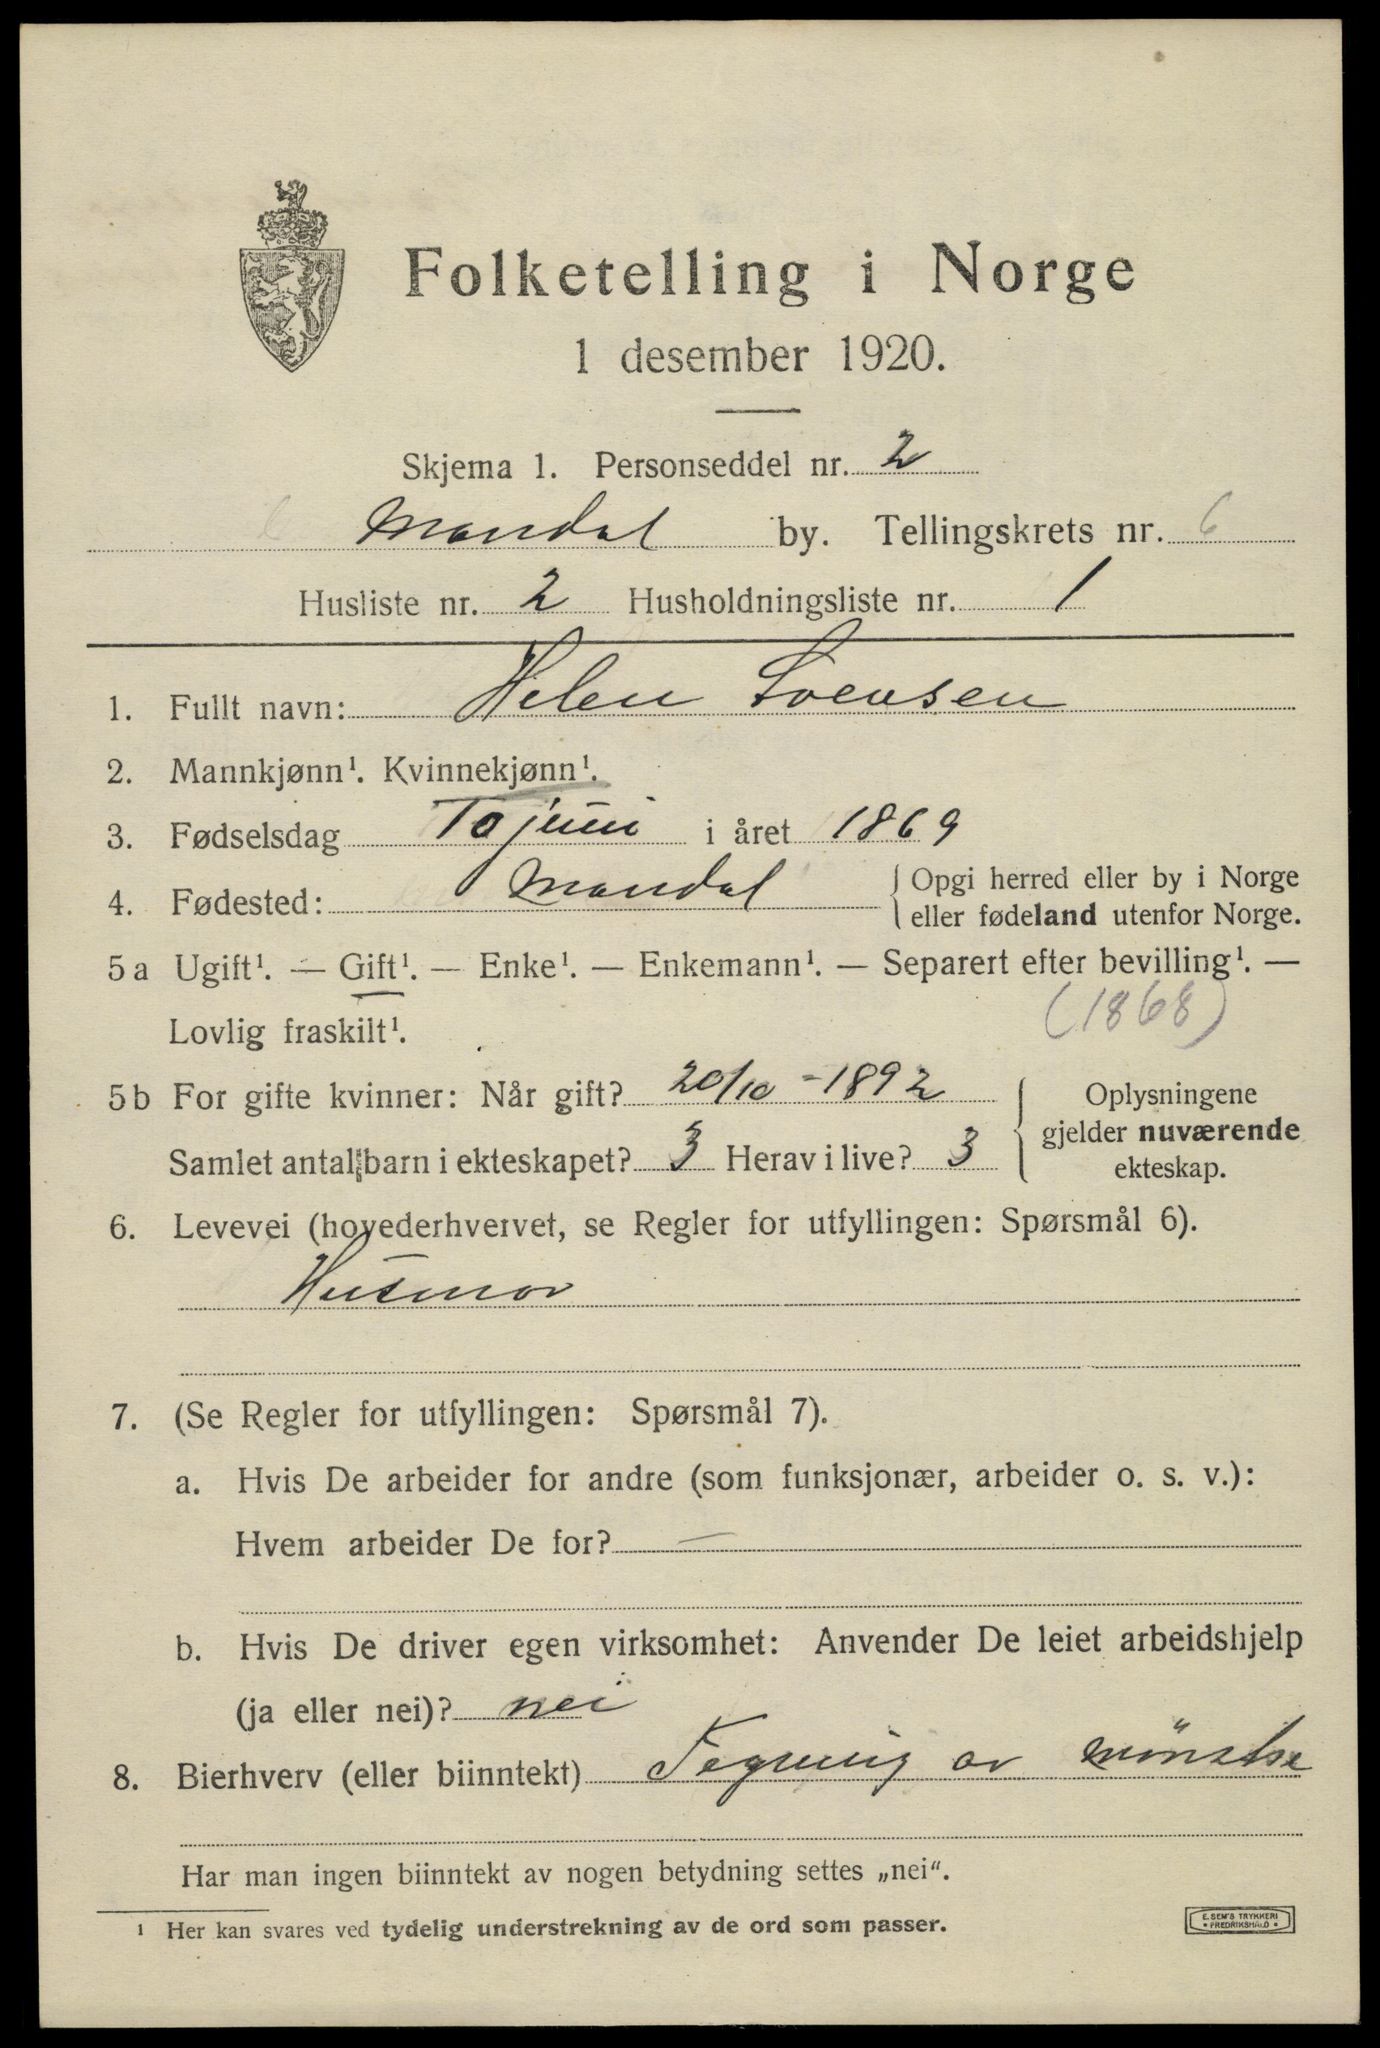 Folketelling i Norge
1 desember 1920.
Skjema 1. Personseddel nr. 2
Mandal by. Tellingskrets nr. 6
Husliste nr. 2 Husholdningsliste nr. 1
1. Fullt navn: Helen Svensen
2. Mannkjønn¹. Kvinnekjønn¹.
3. Fødselsdag juni i året 1869
4. Fødested: Mandal {Opgi herred eller by i Norge
eller fødeland utenfor Norge.
5a Ugift¹. — Gift¹. — Enke¹. — Enkemann¹. — Separert efter bevilling¹. —
Lovlig fraskilt¹. (1868)
5b For gifte kvinner: Når gift? 20/10 - 1892
Samlet antal barn i ekteskapet? 3 Herav i live? 3
{Oplysningene
gjelder nuværende
ekteskap.
6. Levevei (hovederhvervet, se Regler for utfyllingen: Spørsmål 6).
Husmor
7. (Se Regler for utfyllingen: Spørsmål 7).
a. Hvis De arbeider for andre (som funksjonær, arbeider o. s. v.):
Hvem arbeider De for? —
b. Hvis De driver egen virksomhet: Anvender De leiet arbeidshjelp
(ja eller nei)? nei
8. Bierhverv (eller biinntekt) Tegning av mønstre
Har man ingen biinntekt av nogen betydning settes „nei“.
¹ Her kan svares ved tydelig understrekning av de ord som passer.
E. SEM'S TRYKKERI
• FREDRIKSHALD •